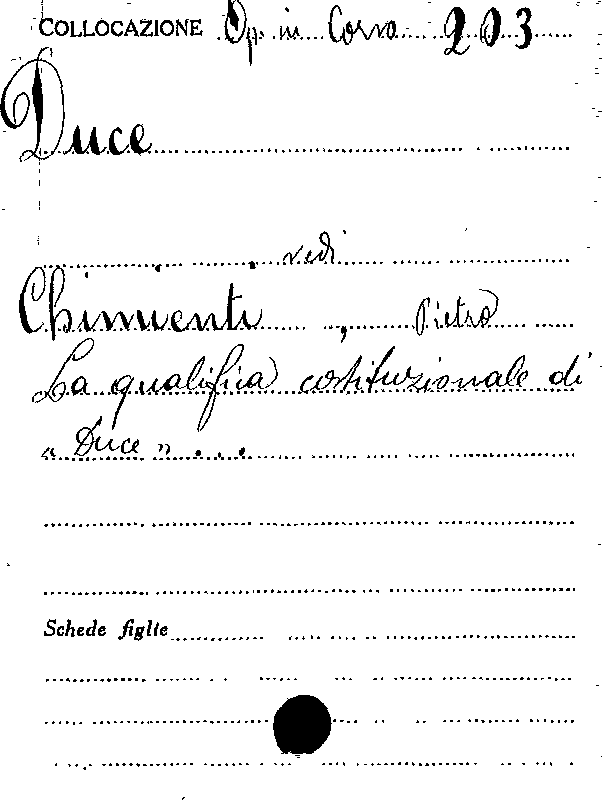 COLLOCAZIONE Op. in Corso 203
Duce
vedi
Chimienti, Pietro
La qualifica costituzionale di
« Duce » ...
Schede figlie